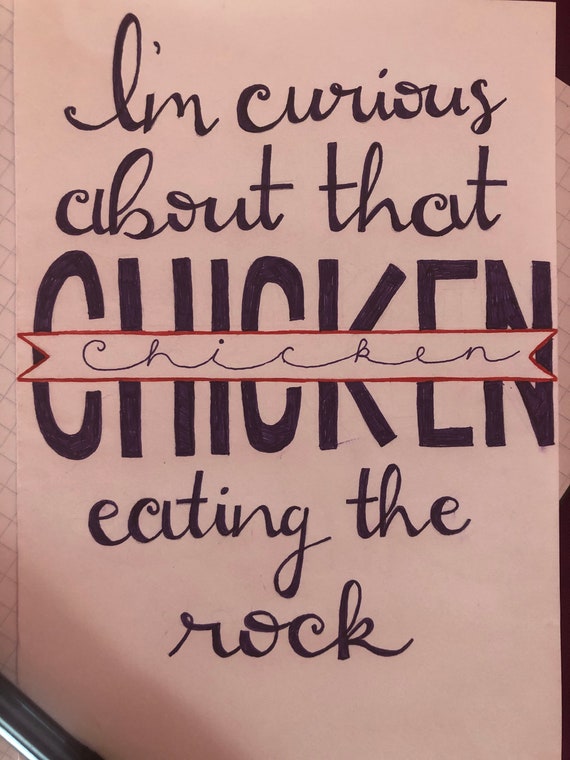 I'm curious
about that
CHICKEN
chicken
eating the
rock